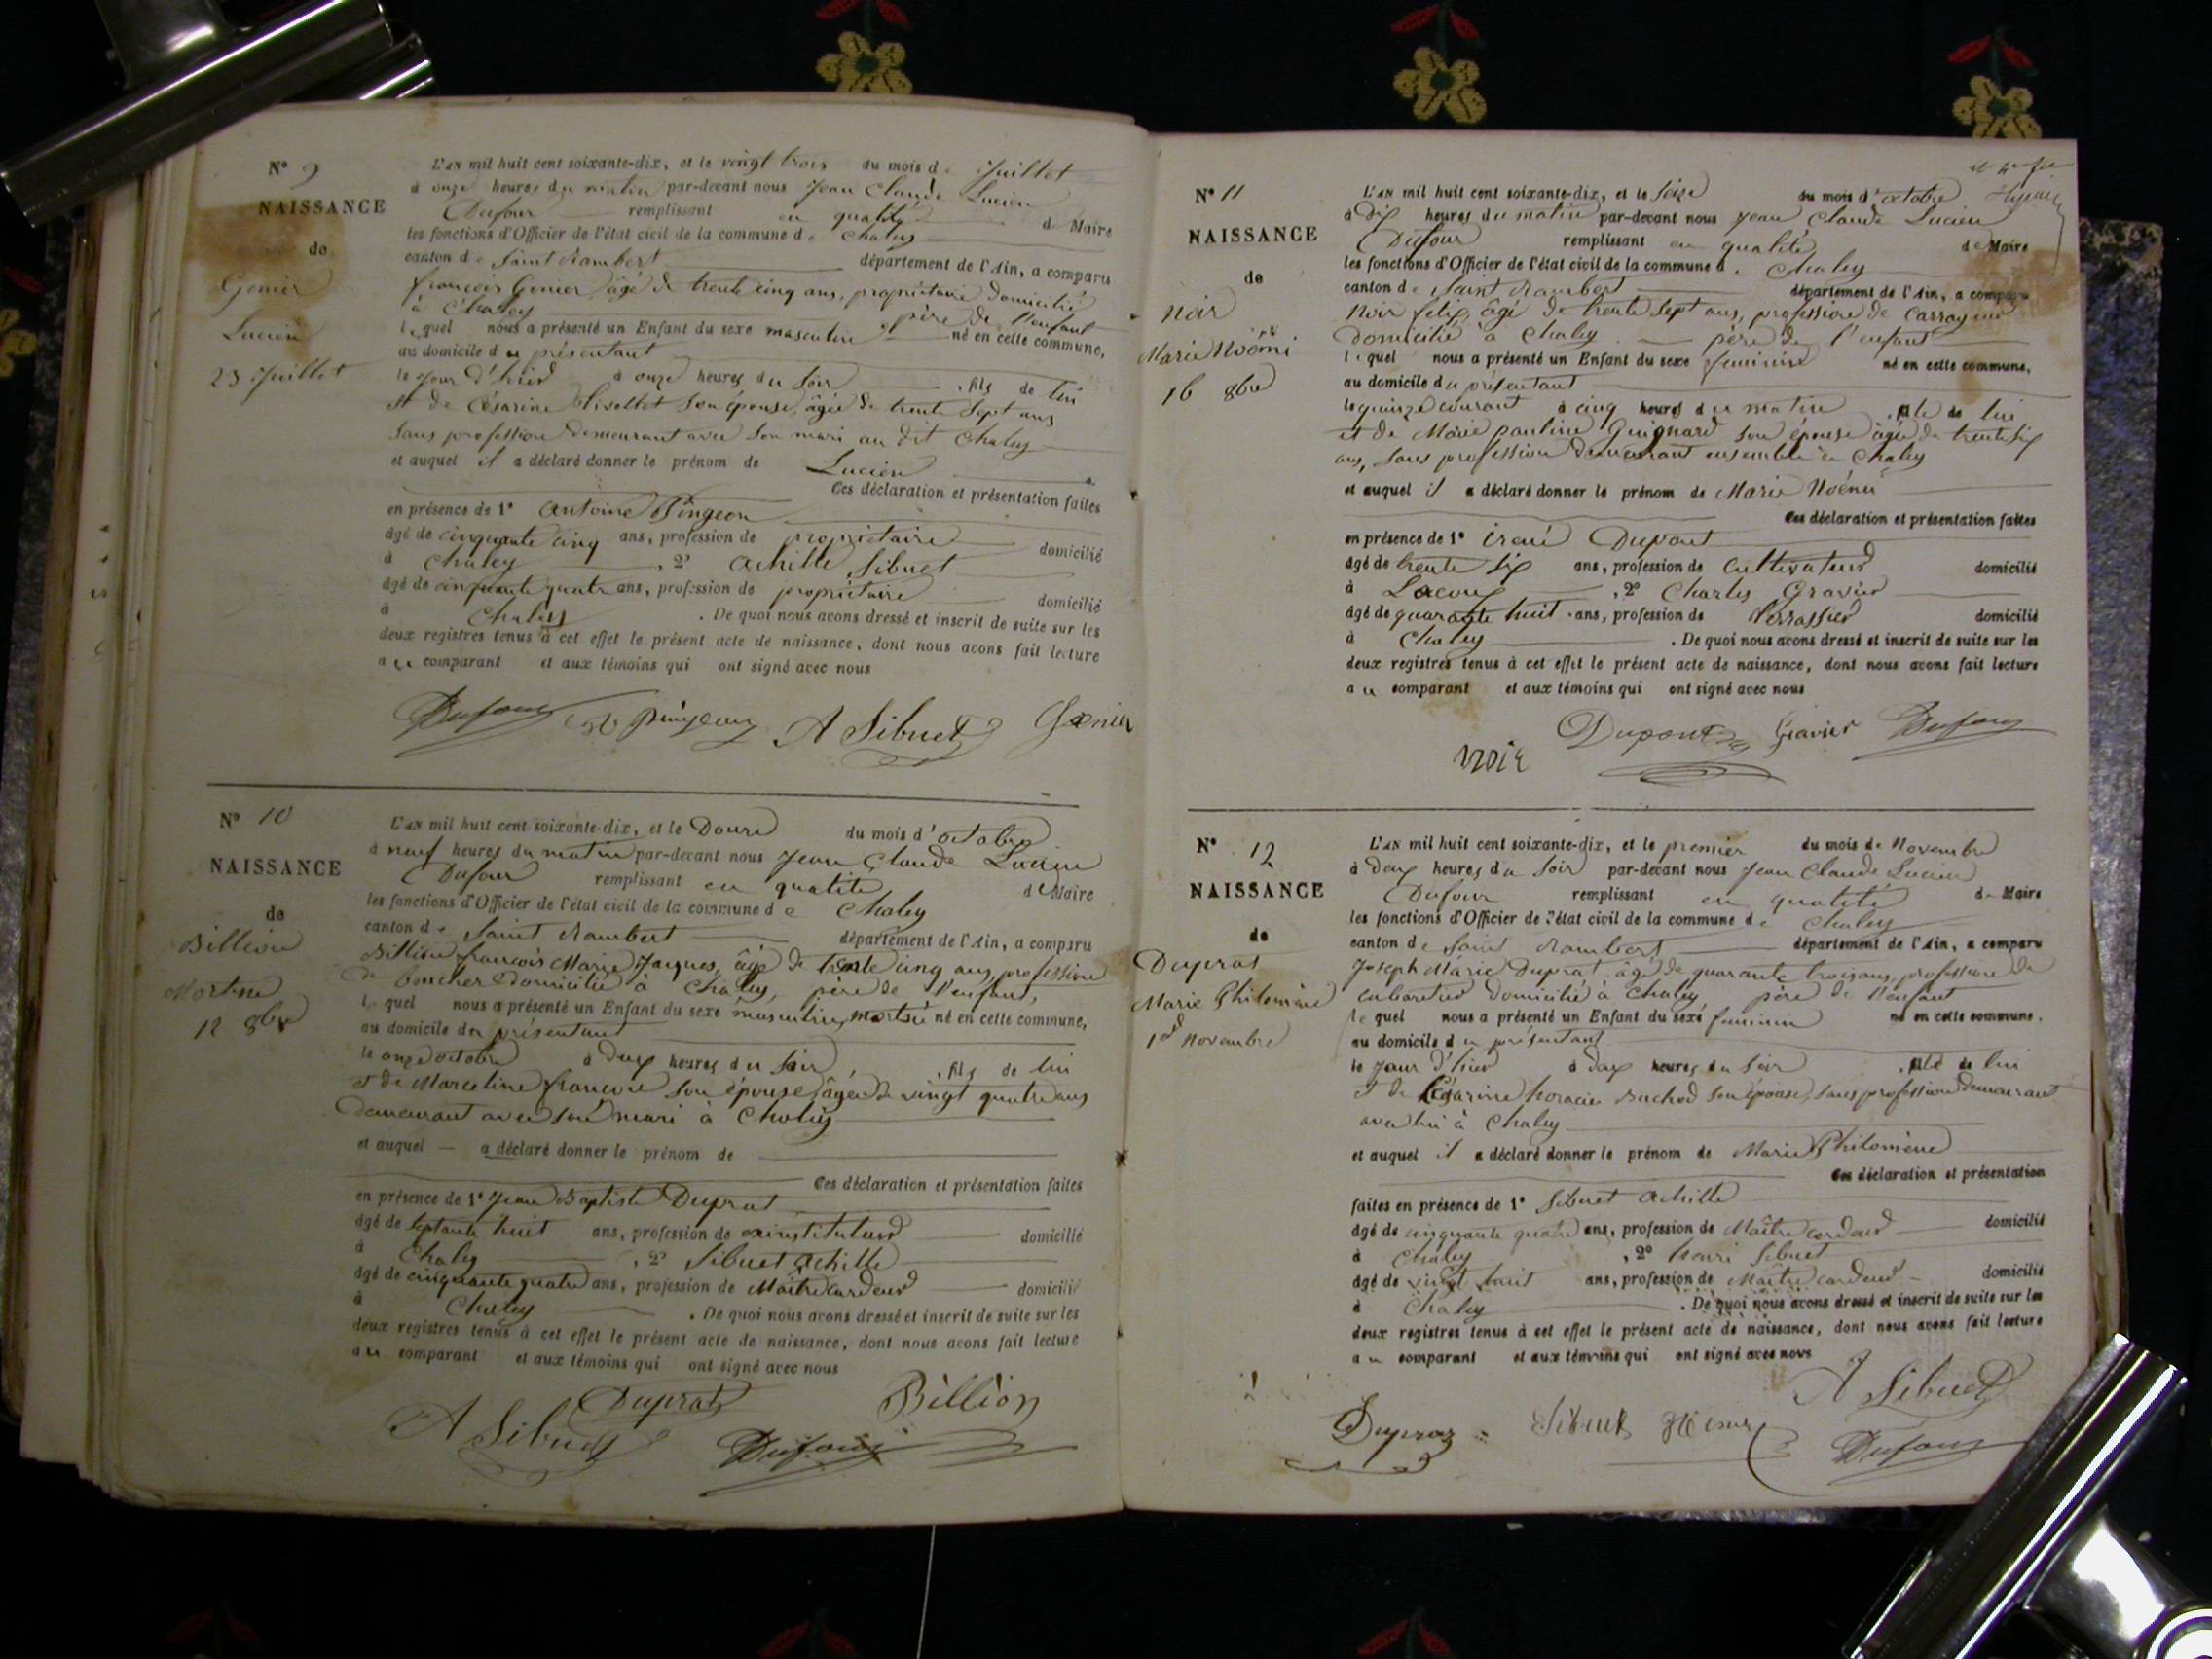 N° 9
NAISSANCE
de
Genier
Lucien
23 Juillet
L'AN mil huit cent soixante-dix, et le vingt trois du mois de Juillet
à onze heures du matin par-devant nous Jean Claude Lucien
Dufour remplissant en qualité de Maire
les fonctions d'Officier de l'état civil de la commune de Chaley
canton de Saint Rambert département de l'Ain, a comparu
françois Genier âgé de trente cinq ans, propriétaire domicilié
à Chaley père de l'enfant
lequel nous a présenté un Enfant du sexe masculin né en cette commune,
au domicile du présentant
le jour d'hier à onze heures du soir, fils de lui
et de Césarine Livollet son épouse, âgée de trente sept ans
sans profession demeurant avec son mari au dit Chaley
et auquel il a déclaré donner le prénom de Lucien
Ces déclaration et présentation faites
en présence de 1° Antoine Pingeon
âgé de cinquante cinq ans, profession de propriétaire domicilié
à Chaley, 2° Achille Sibuet
âgé de cinquante quatre ans, profession de propriétaire domicilié
à Chaley. De quoi nous avons dressé et inscrit de suite sur les
deux registres tenus à cet effet le présent acte de naissance, dont nous avons fait lecture
au comparant et aux témoins qui ont signé avec nous
Dufour Pingeon A Sibuet Genier
N° 10
NAISSANCE
de
Billion
Mort né
12 8bre
L'AN mil huit cent soixante-dix, et le Douze du mois d'octobre
à neuf heures du matin par-devant nous Jean Claude Lucien
Dufour remplissant en qualité de Maire
les fonctions d'Officier de l'état civil de la commune de Chaley
canton de Saint Rambert département de l'Ain, a comparu
Billion françois Marie Jacques, âgé de trente cinq ans, profession
de boucher domicilié à Chaley, père de l'enfant,
lequel nous a présenté un Enfant du sexe masculin, mort né né en cette commune,
au domicile du présentant
le onze octobre à deux heures du soir, fils de lui
et de Marceline françois son épouse, âgée de vingt quatre ans
demeurant avec son mari à Chaley
et auquel — a déclaré donner le prénom de
Ces déclaration et présentation faites
en présence de 1° Jean Baptiste Duprat
âgé de septante huit ans, profession de ex instituteur domicilié
à Chaley, 2° Sibuet Achille
âgé de cinquante quatre ans, profession de Maître cardeur domicilié
à Chaley. De quoi nous avons dressé et inscrit de suite sur les
deux registres tenus à cet effet le présent acte de naissance, dont nous avons fait lecture
au comparant et aux témoins qui ont signé avec nous
A Sibuet Duprat Dufour Billion
N° 11
NAISSANCE
de
noir
Marie Noémi
16 8bre
L'AN mil huit cent soixante-dix, et le seize du mois d'octobre
à dix heures du matin par-devant nous Jean Claude Lucien
Dufour remplissant en qualité de Maire
les fonctions d'Officier de l'état civil de la commune de Chaley
canton de Saint Rambert département de l'Ain, a comparu
Noir félix, âgé de trente sept ans, profession de
domicilié à Chaley père de l'enfant
lequel nous a présenté un Enfant du sexe féminin né en cette commune,
au domicile du présentant
le quinze courant à cinq heures du matin, fille de lui
et de Marie pauline Guignard son épouse âgée de trente six
ans, sans profession demeurant ensemble à Chaley
et auquel il a déclaré donner le prénom de Marie Noémi
Ces déclaration et présentation faites
en présence de 1° irené Dupont
âgé de trente six ans, profession de cultivateur domicilié
à Lacoux, 2° Charles Gravier
âgé de quarante huit ans, profession de Terrassier domicilié
à Chaley. De quoi nous avons dressé et inscrit de suite sur les
deux registres tenus à cet effet le présent acte de naissance, dont nous avons fait lecture
au comparant et aux témoins qui ont signé avec nous
noir Dupont Gravier Dufour
N° 12
NAISSANCE
de
Duprat
Marie Philomène
1er Novembre
L'AN mil huit cent soixante-dix, et le premier du mois de Novembre
à deux heures du soir par-devant nous Jean Claude Lucien
Dufour remplissant en qualité de Maire
les fonctions d'Officier de l'état civil de la commune de Chaley
canton de Saint Rambert département de l'Ain, a comparu
Joseph Marie Duprat, âgé de quarante trois ans, profession de
cabaretier domicilié à Chaley, père de l'enfant
lequel nous a présenté un Enfant du sexe féminin né en cette commune,
au domicile du présentant
le jour d'hier à deux heures du soir, fille de lui
et de Césarine horacie Buchod son épouse, sans profession demeurant
avec lui à Chaley
et auquel il a déclaré donner le prénom de Marie Philomène
Ces déclaration et présentation
faites en présence de 1° Sibuet Achille
âgé de cinquante quatre ans, profession de Maître cardeur domicilié
à Chaley, 2° henri Sibuet
âgé de vingt huit ans, profession de Maître cardeur domicilié
à Chaley. De quoi nous avons dressé et inscrit de suite sur les
deux registres tenus à cet effet le présent acte de naissance, dont nous avons fait lecture
au comparant et aux témoins qui ont signé avec nous
A Sibuet
Duprat Sibuet Henri Dufour